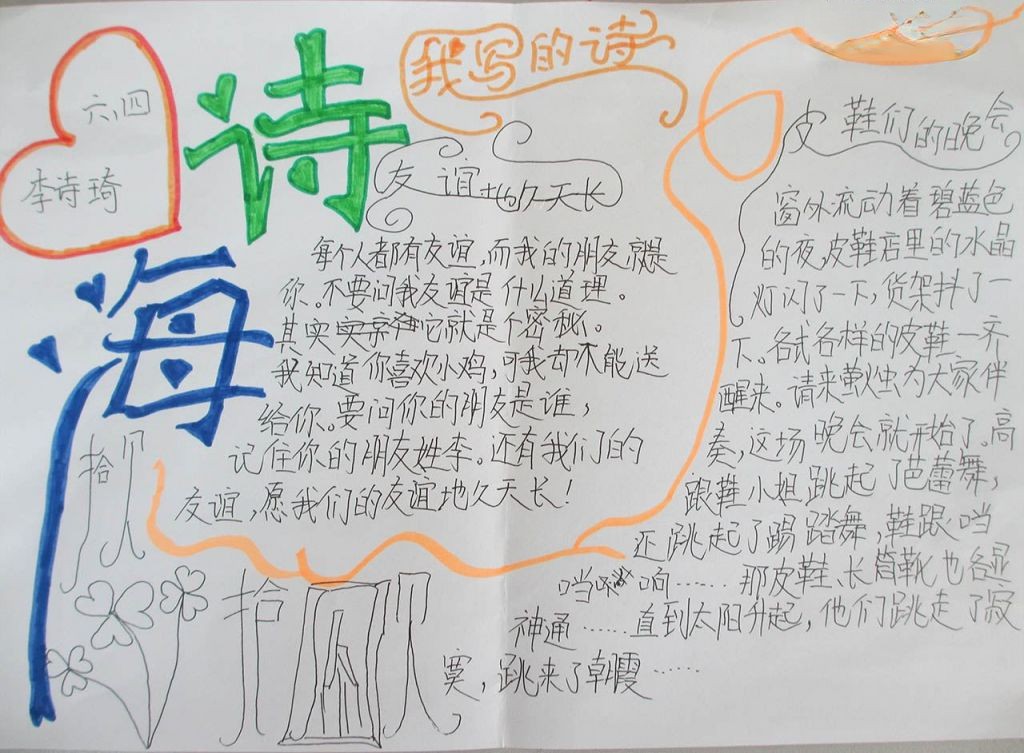 六、四
李诗琦
诗海
拾贝
我写的诗
友谊地久天长
每个人都有友谊，而我的朋友就是
你。不要问我友谊是什么道理。
其实它就是个密秘。
我知道你喜欢小鸡，可我却不能送
给你。要问你的朋友是谁，
记住你的朋友姓李。还有我们的
友谊，愿我们的友谊地久天长！
拾贝
皮鞋们的晚会
窗外流动着碧蓝色
的夜，皮鞋店里的水晶
灯闪了一下，货架抖了一
下。各式各样的皮鞋一齐
醒来。请来萤火虫为大家伴
奏，这场晚会就开始了。高
跟鞋小姐跳起了芭蕾舞，
还跳起了踢踏舞，鞋跟铛
铛响……那皮鞋、长筒靴也各显
神通……直到太阳升起，他们跳走了寂
寞，跳来了朝霞……